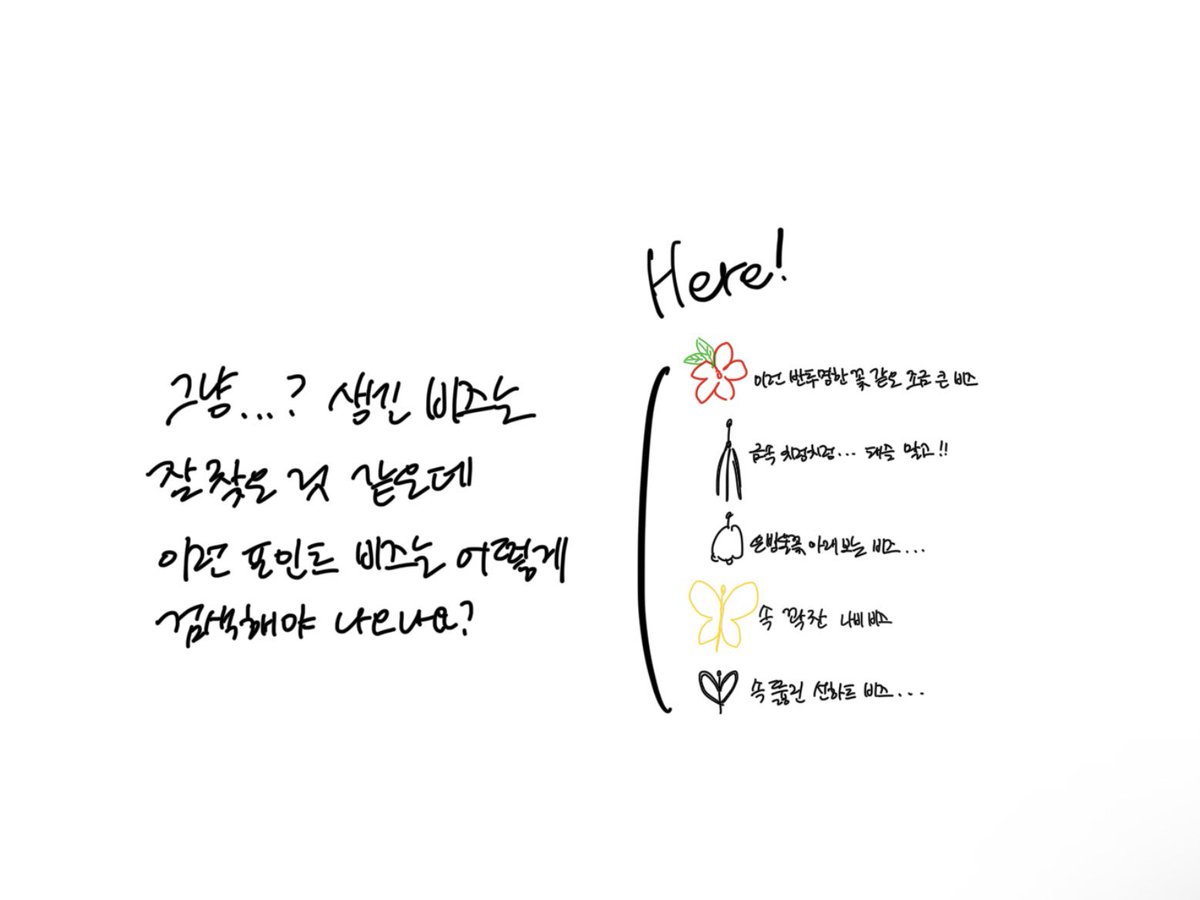 그냥...? 생긴 비즈는
잘 찾은 것 같은데
이런 포인트 비즈는 어떻게
검색해야 나오나요?
Here!
이런 반투명한 꽃 같은 조금 큰 비즈
금속 치렁치렁... 태슬 말고!!
은방울꽃 아래 보는 비즈...
속 꽉찬 나비 비즈
속 뚫린 선하트 비즈...